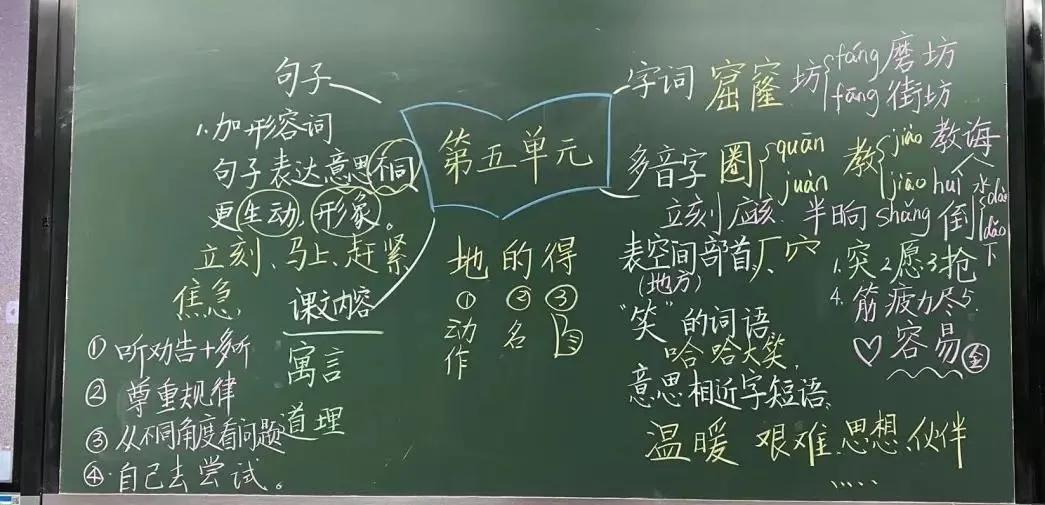 第五单元
句子
1.加形容词
句子表达意思不同
更生动、形象。
立刻、马上、赶紧
焦急、
课文内容
寓言
道理
① 听劝告+多听
② 尊重规律
③ 从不同角度看问题
④ 自己去尝试。
地 的 得
① ② ③
动作 名
字词 窟窿 坊 fáng 磨坊
fāng 街坊
多音字 圈 quān 教 jiào 教诲
juàn jiāo huì 水 dào
立刻 应该 半晌 shǎng 倒 dǎo 下
表空间部首 厂 穴
(地方)
1.突 2愿 3.抢
4. 筋疲力尽 5.
容易 全
“笑”的词语
哈哈大笑、
意思相近字短语
温暖 艰难、思想、伙伴
.....